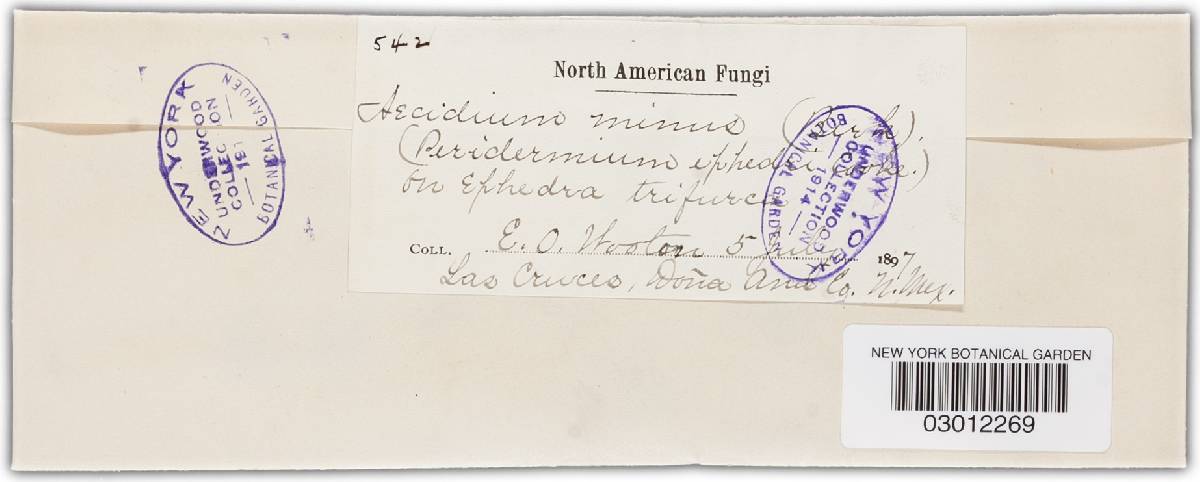 542
North American Fungi
Aecidium minus
(Peridermium ephedrae Cooke.)
On Ephedra trifurca
COLL. E. O. Wooton 5 July 1897
Las Cruces, Doña Ana Co. N. Mex.
NEW YORK
UNDERWOOD
COLLECTION
191
BOTANICAL GARDEN
NEW YORK
UNDERWOOD
COLLECTION
1914
BOTANICAL GARDEN
NEW YORK BOTANICAL GARDEN
03012269